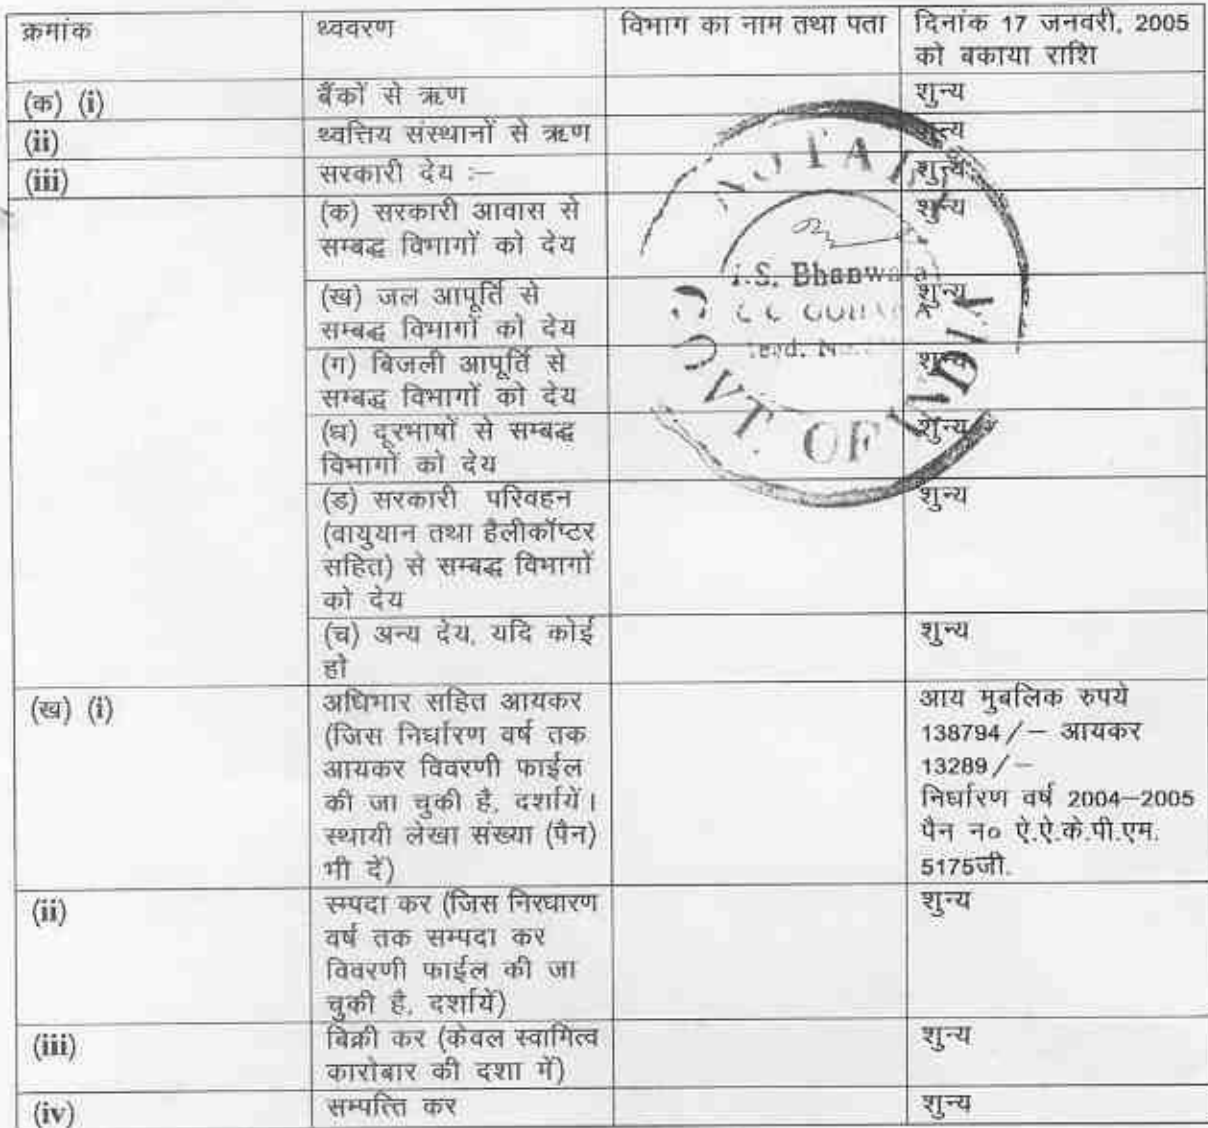 क्रमांक
ध्ववरण
विभाग का नाम तथा पता
दिनांक 17 जनवरी, 2005
को बकाया राशि
(क) (i)
बैंकों से ऋण
शुन्य
(ii)
ध्वत्तिय संस्थानों से ऋण
शुन्य
(iii)
सरकारी देय :–
शुन्य
(क) सरकारी आवास से
सम्बद्ध विभागों को देय
शुन्य
(ख) जल आपूर्ति से
सम्बद्ध विभागों को देय
शुन्य
(ग) बिजली आपूर्ति से
सम्बद्ध विभागों को देय
शुन्य
(घ) दूरभाषों से सम्बद्ध
विभागों को देय
शुन्य
(ड) सरकारी परिवहन
(वायुयान तथा हैलीकॉप्टर
सहित) से सम्बद्ध विभागों
को देय
शुन्य
(च) अन्य देय, यदि कोई
हो
शुन्य
(ख) (i)
अधिभार सहित आयकर
(जिस निर्धारण वर्ष तक
आयकर विवरणी फाईल
की जा चुकी है, दर्शायें।
स्थायी लेखा संख्या (पैन)
भी दें)
आय मुबलिक रुपये
138794/– आयकर
13289/–
निर्धारण वर्ष 2004–2005
पैन न० ऐ.ऐ.के.पी.एम.
5175जी.
(ii)
स्म्पदा कर (जिस निरधारण
वर्ष तक सम्पदा कर
विवरणी फाईल की जा
चुकी है, दर्शायें)
शुन्य
(iii)
बिक्री कर (केवल स्वामित्व
कारोबार की दशा में)
शुन्य
(iv)
सम्पत्ति कर
शुन्य
NOTARY
.S. Bhanwala
GOVT. OF INDIA